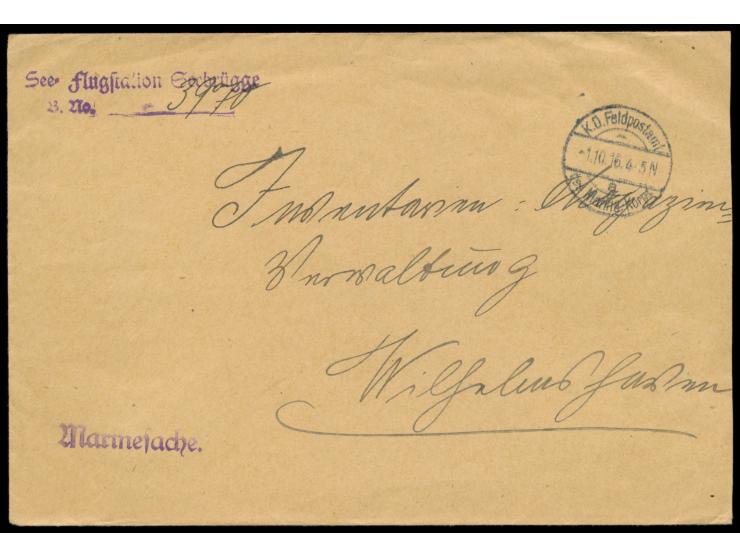 See- Flugstation Seebrügge
B. No. 3970
K.D. Feldpostamt
-1.10.16. 4-5 N
a
des Marine-Korps
Inventarien-Magazin-
Verwaltung
Wilhelmshaven
Marinesache.